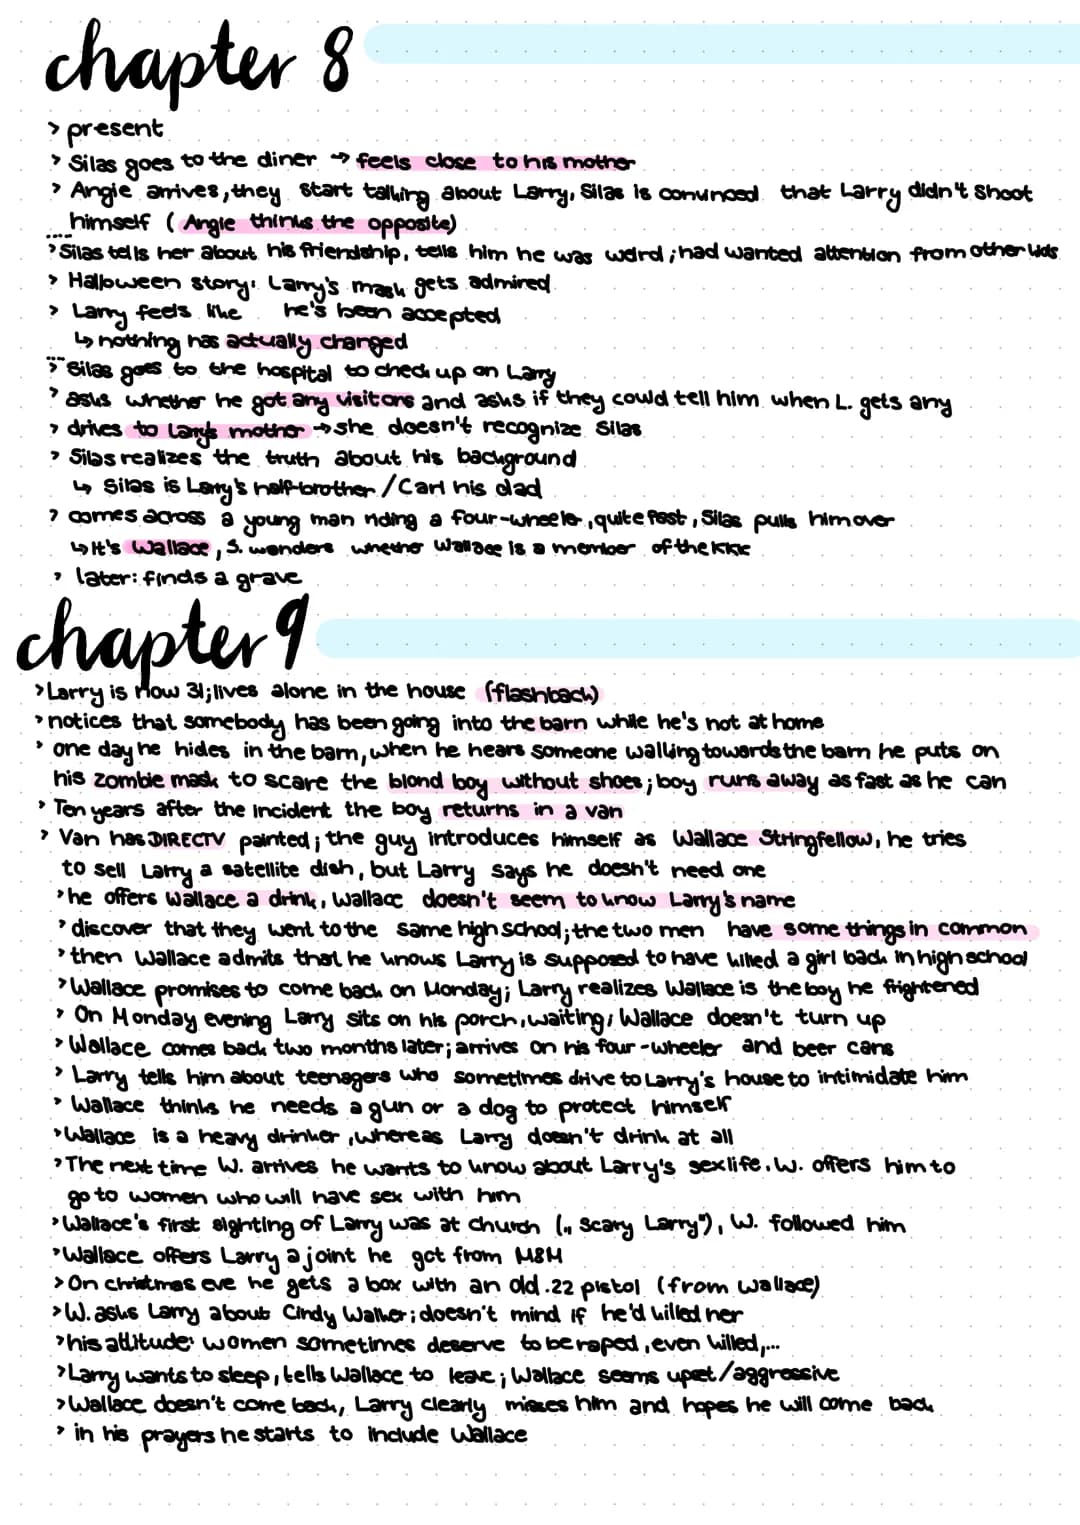 chapter 8
> present
> Silas goes to the diner → feels close to his mother
> Angie arrives, they start talking about Larry, Silas is convinced that Larry didn't shoot
himself (Angie thinks the opposite)
> Silas tells her about his friendship, tells him he was weird; had wanted attention from other kids
> Halloween story: Larry's mask gets admired
> Larry feels like he's been accepted
↳ nothing has actually changed
> Silas goes to the hospital to check up on Larry
> asks whether he got any visitors and asks if they could tell him when L. gets any
> drives to Larry's mother → she doesn't recognize Silas
> Silas realizes the truth about his background
↳ Silas is Larry's half-brother / Carl his dad
> comes across a young man riding a four-wheeler, quite fast, Silas pulls him over
↳ It's Wallace, S. wonders whether Wallace is a member of the KKK
> later: finds a grave
chapter 9
> Larry is now 31; lives alone in the house (flashback)
> notices that somebody has been going into the barn while he's not at home
> one day he hides in the barn, when he hears someone walking towards the barn he puts on
his zombie mask to scare the blond boy without shoes; boy runs away as fast as he can
> Ten years after the incident the boy returns in a van
> Van has DIRECTV painted; the guy introduces himself as Wallace Stringfellow, he tries
to sell Larry a satellite dish, but Larry says he doesn't need one
> he offers Wallace a drink, Wallace doesn't seem to know Larry's name
> discover that they went to the same high school; the two men have some things in common
> then Wallace admits that he knows Larry is supposed to have killed a girl back in high school
> Wallace promises to come back on Monday; Larry realizes Wallace is the boy he frightened
> On Monday evening Larry sits on his porch, waiting; Wallace doesn't turn up
> Wallace comes back two months later; arrives on his four-wheeler and beer cans
> Larry tells him about teenagers who sometimes drive to Larry's house to intimidate him
> Wallace thinks he needs a gun or a dog to protect himself
> Wallace is a heavy drinker, whereas Larry doesn't drink at all
> The next time W. arrives he wants to know about Larry's sexlife. W. offers him to
go to women who will have sex with him
> Wallace's first sighting of Larry was at church („ Scary Larry"), W. followed him
> Wallace offers Larry a joint he got from M&M
> On christmas eve he gets a box with an old .22 pistol (from Wallace)
> W. asks Larry about Cindy Walker; doesn't mind if he'd killed her
> his attitude: women sometimes deserve to be raped, even killed,...
> Larry wants to sleep, tells Wallace to leave; Wallace seems upset/aggressive
> Wallace doesn't come back, Larry clearly misses him and hopes he will come back
> in his prayers he starts to include Wallace